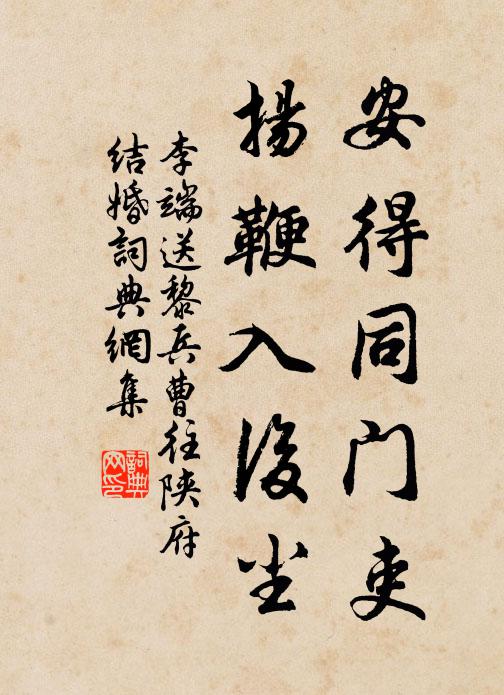 安得同門吏
揚鞭入後尘
李端送黎兵曹往陝府
結婚詞典網集
詞典网印